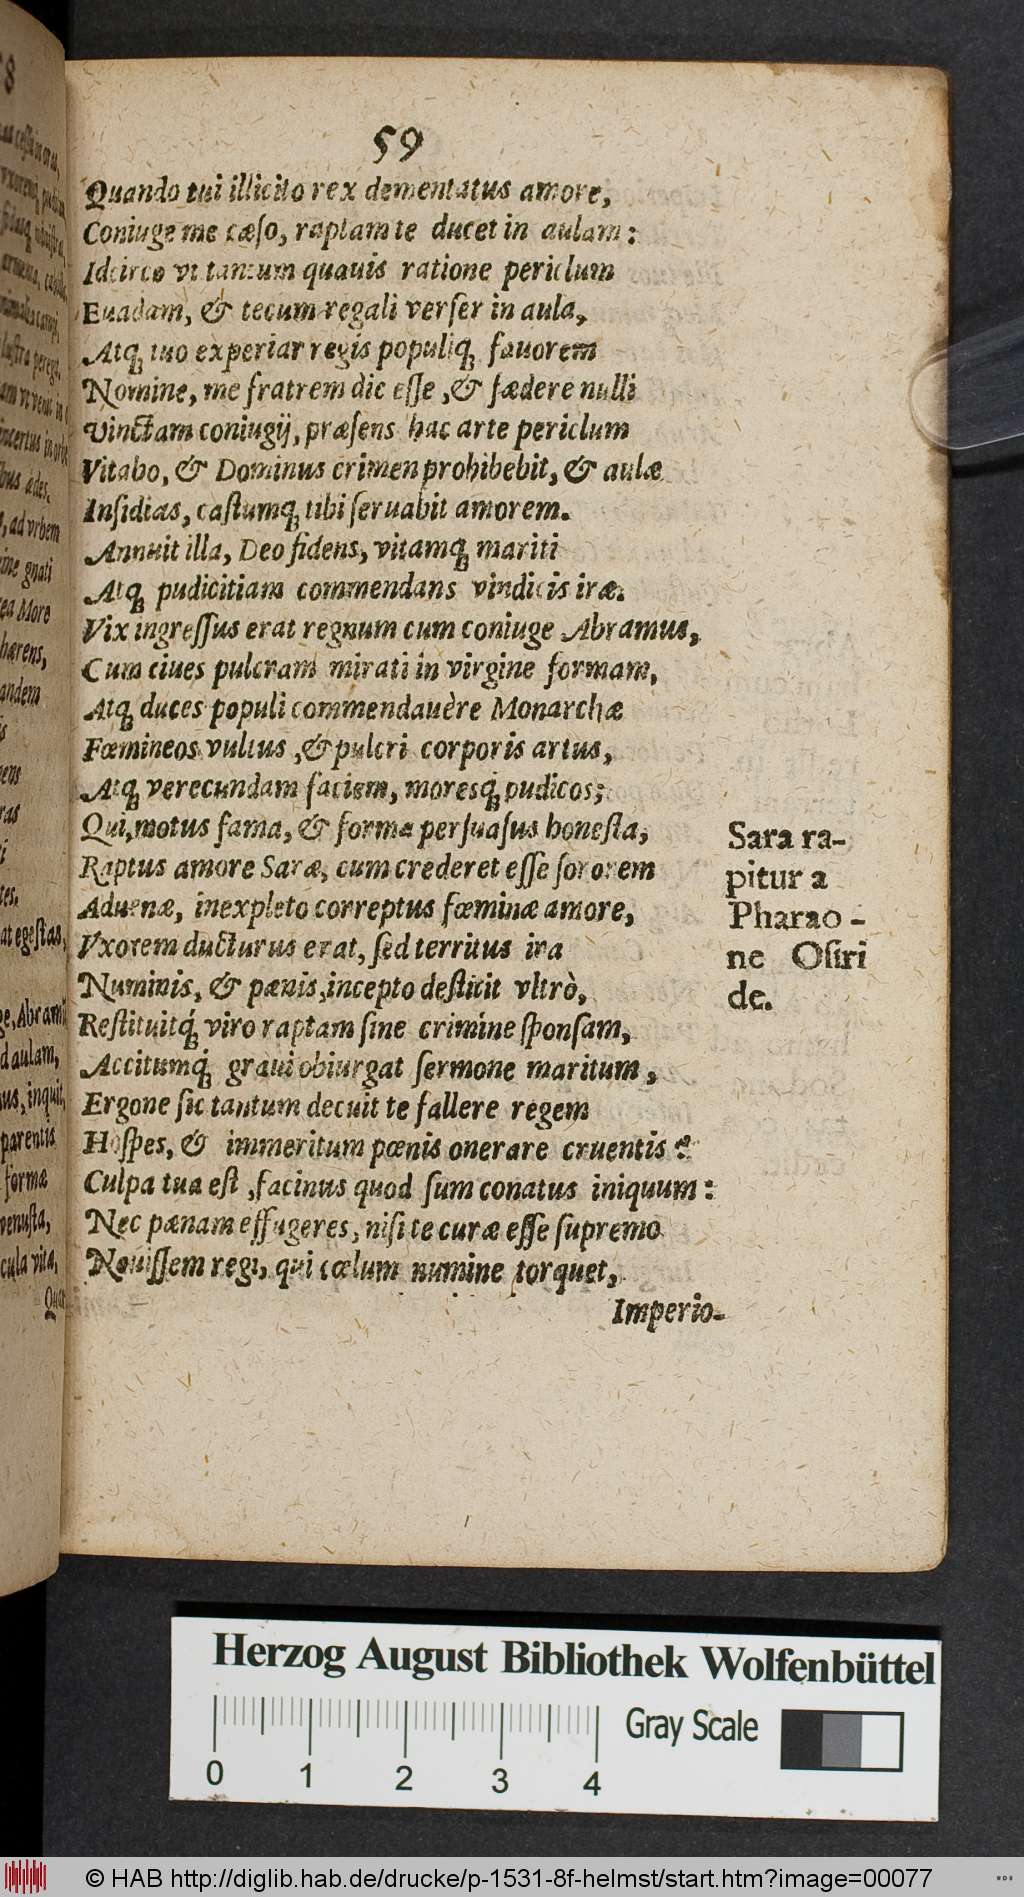 59
Quando tui illicito rex dementatus amore,
Coniuge me cæſo, raptam te ducet in aulam:
Idcirco vt tantum quauis ratione periclum
Euadam, & tecum regali verſer in aula,
Atq́; tuo experiar regis populiq́; fauorem
Nomine, me fratrem dic eſſe, & fædere nulli
Vinctam coniugij, præſens hac arte periclum
Vitabo, & Dominus crimen prohibebit, & aulæ
Inſidias, caſtumq́; tibi ſeruabit amorem.
Annuit illa, Deo fidens, vitamq́; mariti
Atq́; pudicitiam commendans vindicis iræ.
Vix ingreſſus erat regnum cum coniuge Abramus,
Cum ciues pulcram mirati in virgine formam,
Atq́; duces populi commendauère Monarchæ
Fœmineos vultus, & pulcri corporis artus,
Atq́; verecundam faciem, moresq́; pudicos;
Qui, motus fama, & forma perſuaſus honeſta,
Raptus amore Saræ, cum crederet eſſe ſororem
Aduenæ, inexpleto correptus fœminæ amore,
Vxorem ducturus erat, ſed territus ira
Numinis, & pænis, incepto deſtitit vltrò,
Reſtituitq́; viro raptam ſine crimine ſponſam,
Accitumq́; graui obiurgat ſermone maritum,
Ergone ſic tantum decuit te fallere regem
Hoſpes, & immeritum pœnis onerare cruentis?
Culpa tua eſt, facinus quod ſum conatus iniquum:
Nec pænam effugeres, niſi te curæ eſſe ſupremo
Nouiſſem regi, qui cœlum numine torquet,
Imperio-
Sara ra-
pitur a
Pharao-
ne Oſiri
de.
Herzog August Bibliothek Wolfenbüttel
Gray Scale
0 1 2 3 4
© HAB http://diglib.hab.de/drucke/p-1531-8f-helmst/start.htm?image=00077